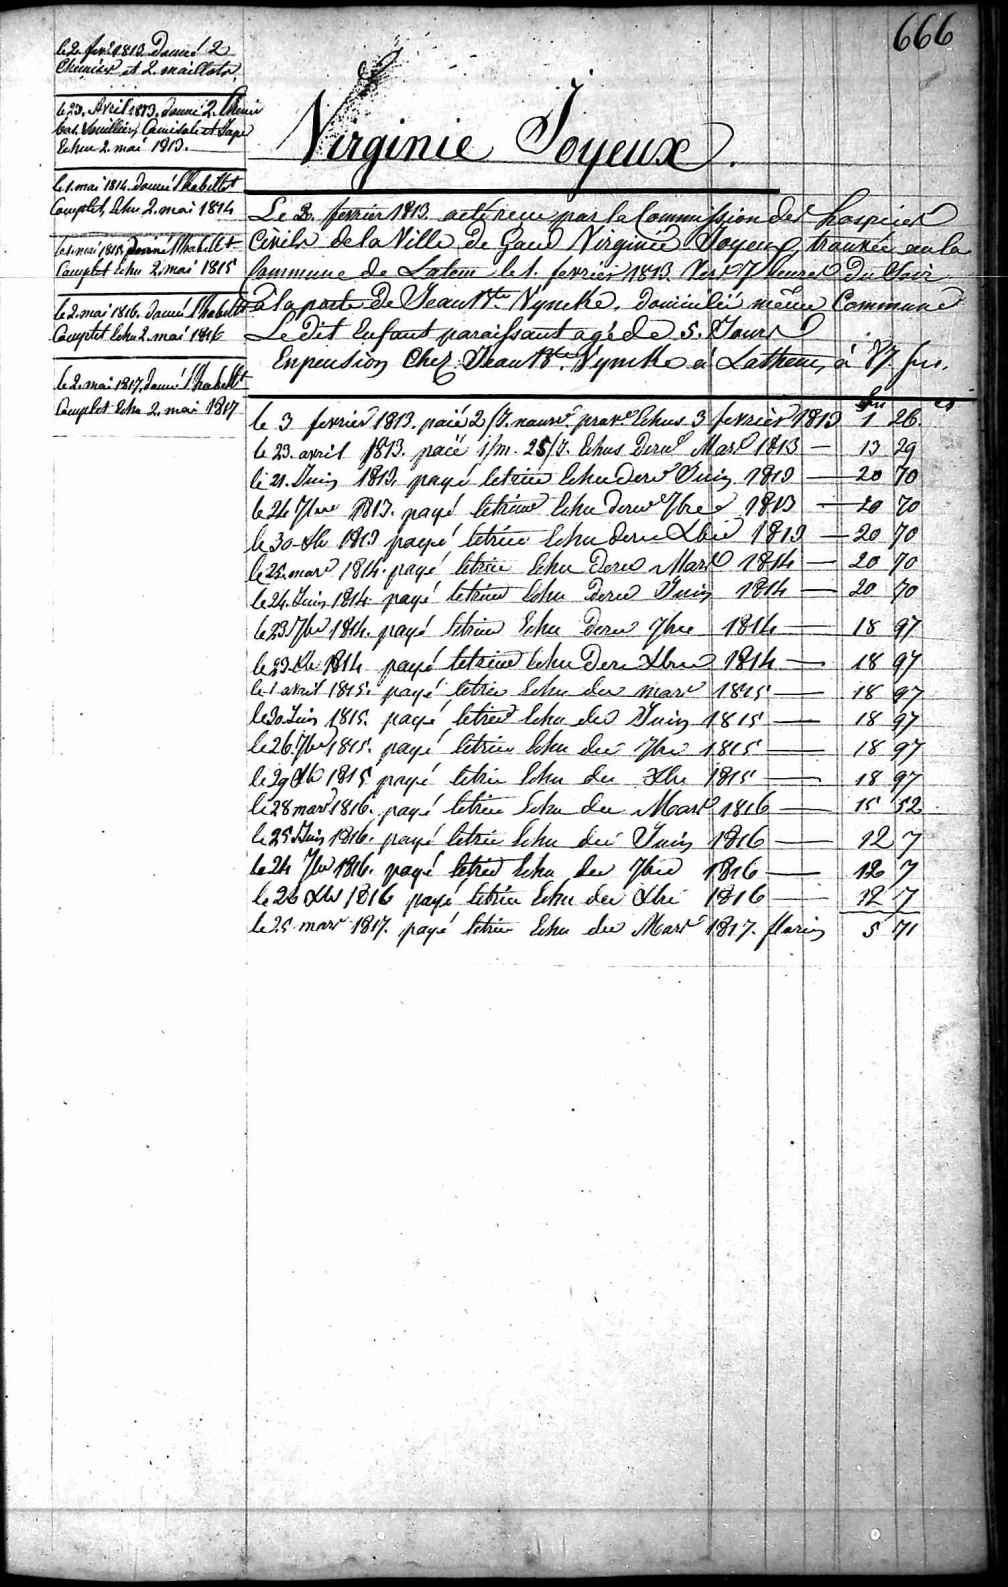 666
le 2. fevr. 1813. Donné 2
Chemises et 2. maillots.
le 23. Avril 1813. donné 2.
bas. Camisole et Jupe
Echu 2. mai 1813.
le 1. mai 1814. donné l'habillt
Complet, Echu 2. mai 1814
le 1. mai 1815. donné l'habillt
Complet Echu 2. mai 1815
le 2. mai 1816. donné l'habillt
Complet Echu 2. mai 1816
le 2. mai 1817. donné l'habillt
Complet Echu 2. mai 1817
Virginie Joyeux.
Le 2. fevrier 1813. a eté recue par la Commission des hospices
Civils de la Ville de Gand Virginie Joyeux, trouvée en la
Commune de Latem le 1. fevrier 1813. Vers 7 heures du Soir
à la porte de Jean Bte Nyncke. domicilié même Commune
Le dit Enfant paraissant agé de 5. Jours
En pension Chez Jean Bte Nyncke à Lathem, à 87. frs.
frs cs
le 3 fevrier 1813. paié 2/J. Echus 3 fevrier 1813 1 26
le 23. avril 1813. paié 1/m. 25/J. Echus Dernr Mars 1813 — 13 29
le 21. Juin 1813. payé le trim Echu dernr Juin 1813 — 20 70
le 24 7bre 1813. payé le trim Echu dernr 7bre 1813 — 20 70
le 30 Xbr 1813 payé le trim Echu dernr Xbre 1813 — 20 70
le 25. mars 1814. payé le trim Echu Dernr Mars 1814 — 20 70
le 24. Juin 1814 payé le trim Echu Dernr Juin 1814 — 20 70
le 23 7br 1814. payé le trim Echu Dernr 7bre 1814 — 18 97
le 23 Xbr 1814 payé le trim Echu Der Xbre 1814 — 18 97
le 1 avril 1815. payé le trim Echu der mars 1815 — 18 97
le 30. Juin 1815. payé le trim Echu der Juin 1815 — 18 97
le 26. 7br 1815. payé le trim Echu der 7bre 1815 — 18 97
le 29 Xbr 1815 payé le trim Echu der Xbre 1815 — 18 97
le 28 mars 1816. payé le trim Echu der Mars 1816 — 15 52
le 25 Juin 1816. payé le trim Echu der Juin 1816 — 12 7
le 24 7br 1816. payé le trim Echu der 7bre 1816 — 12 7
le 26 Xbr 1816 payé le trim Echu der Xbre 1816 — 12 7
le 25 mars 1817. payé le trim Echu der Mars 1817. florins 5 71